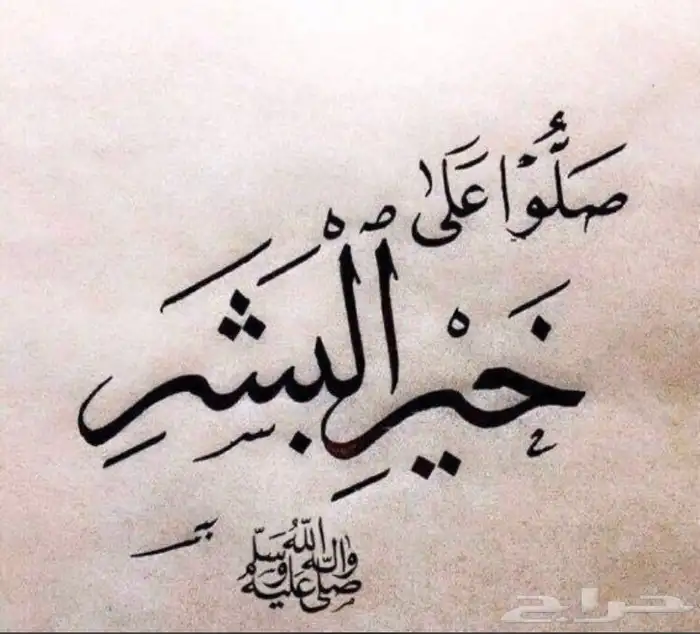 صَلُّوْا عَلَىٰ
خَيْرِ ٱلْبَشَرِ
صلى الله عليه وآله وسلم
حراج